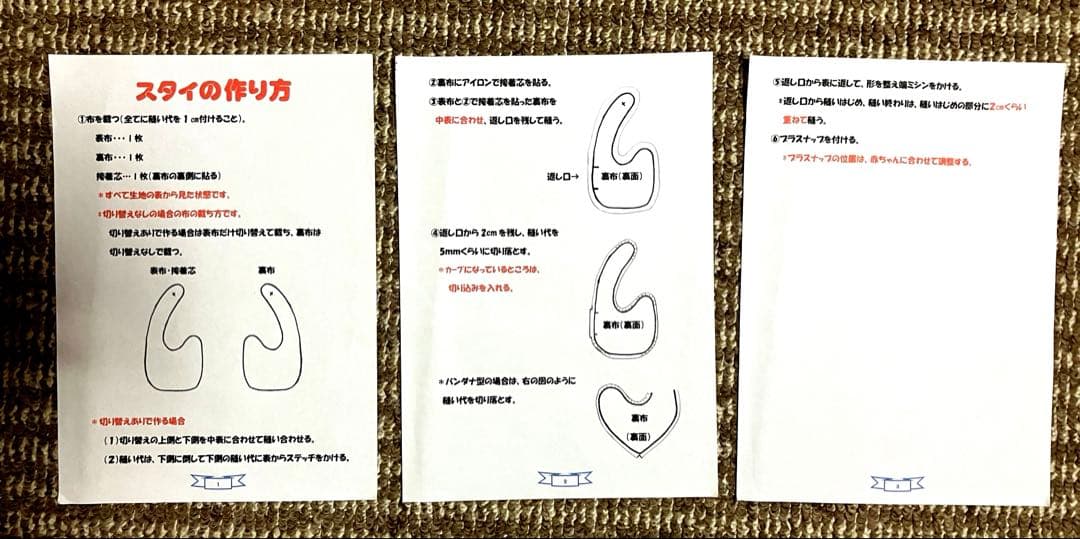 スタイの作り方
①布を裁つ(全てに縫い代を1㎝付けること)。
表布・・・1枚
裏布・・・1枚
接着芯・・・1枚(裏布の裏側に貼る)
*すべて生地の表から見た状態です。
*切り替えなしの場合の布の裁ち方です。
切り替えありで作る場合は表布だけ切り替えて裁ち、裏布は
切り替えなしで裁つ。
表布・接着芯
裏布
*切り替えありで作る場合
(1)切り替えの上側と下側を中表に合わせて縫い合わせる。
(2)縫い代は、下側に倒して下側の縫い代に表からステッチをかける。
1
②裏布にアイロンで接着芯を貼る。
③表布と②で接着芯を貼った裏布を
中表に合わせ、返し口を残して縫う。
返し口→
裏布(裏面)
④返し口から2cmを残し、縫い代を
5mmくらいに切り落とす。
*カーブになっているところは、
切り込みを入れる。
裏布(裏面)
*バンダナ型の場合は、右の図のように
縫い代を切り落とす。
裏布
(裏面)
2
⑤返し口から表に返して、形を整え端ミシンをかける。
*返し口から縫いはじめ、縫い終わりは、縫いはじめの部分に2㎝くらい
重ねて縫う。
⑥プラスナップを付ける。
*プラスナップの位置は、赤ちゃんに合わせて調整する。
3